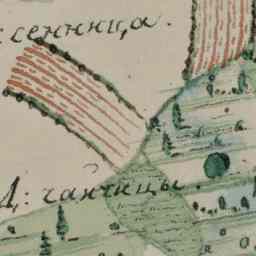 сенница.
Д: чанчицы.